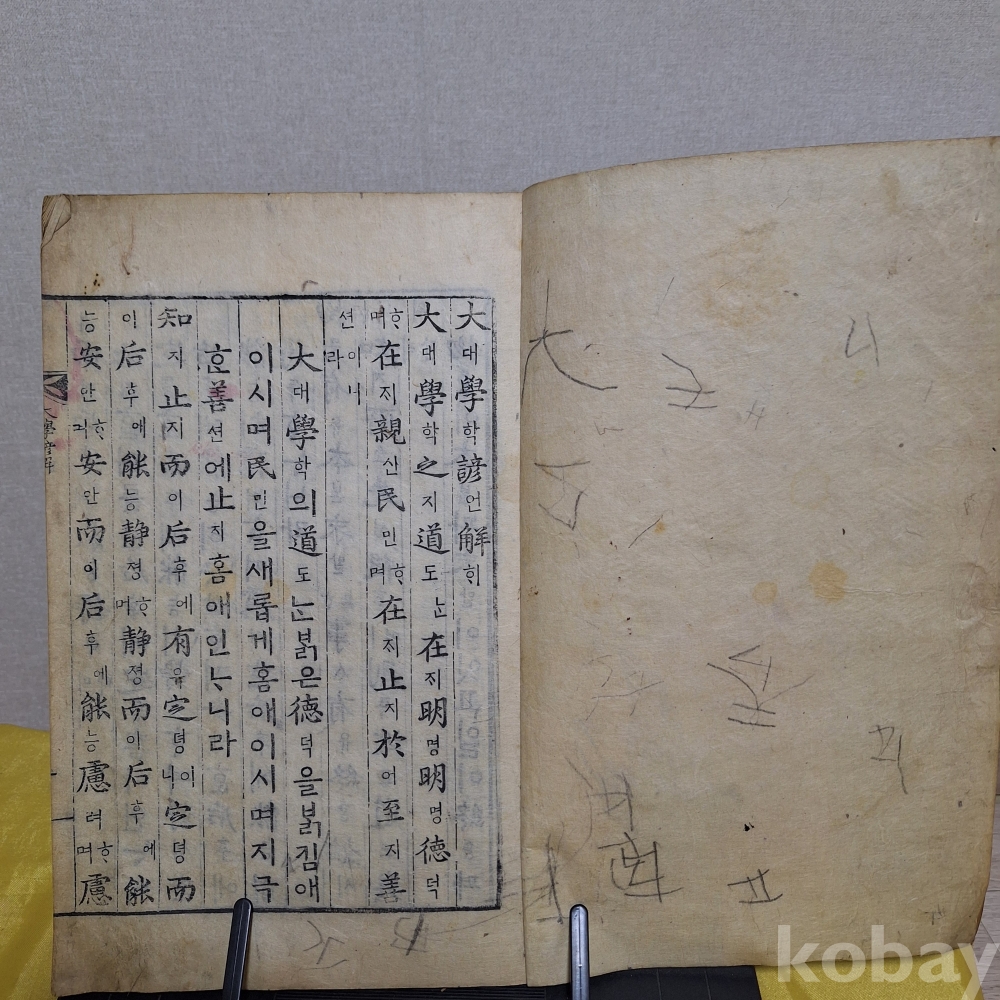 大대學학諺언解ᄒᆡ
大대學학之지道도ᄂᆞᆫ在ᄌᆡ明명明명德덕
ᄒᆞ며在ᄌᆡ親신民민ᄒᆞ며在ᄌᆡ止지於어至지善
션이니라
大대學학의道도ᄂᆞᆫᄇᆞᆰ은德덕을ᄇᆞᆰ김애
이시며民민을새롭게홈애이시며지극
ᄒᆞᆫ善션에止지홈애인ᄂᆞ니라
知지止지而이后후에有유定뎡이니定뎡而
이后후에能능静졍ᄒᆞ며静졍而이后후에能
능安안ᄒᆞ며安안而이后후에能능慮려ᄒᆞ며慮
大學諺解
kobay